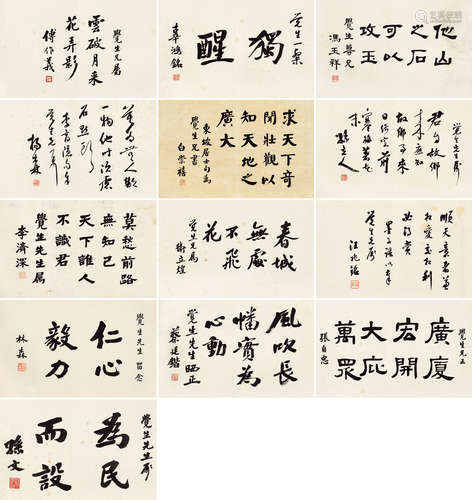 他山
之石
可以
攻玉
覺生吾兄
馮玉祥
覺生一粲
獨
醒
辜鴻銘
覺生兄屬
雲破月來
花弄影
傅作義
覺生先生
君自故鄉
來應知
故鄉事來
日綺窗前
寒梅著花
未
求天下奇
聞壯觀以
知天地之
廣大
東坡居士句為
覺生兄書
白崇禧
楊森
順天意者兼
相愛交相利
必得賞
墨子語以奉
覺生先生屬
汪兆銘
春城
無處
不飛
花
覺生兄屬
衛立煌
莫愁前路
無知己
天下誰人
不識君
覺生先生属
李濟深
廣廈
宏開
大庇
萬眾
覺生兄正
張自忠
風吹長
幡實為
心動
覺生先生哂正
蔡廷鍇
覺生先生 留念
仁心
毅力
林森
覺生先生屬
為民
而設
孫文